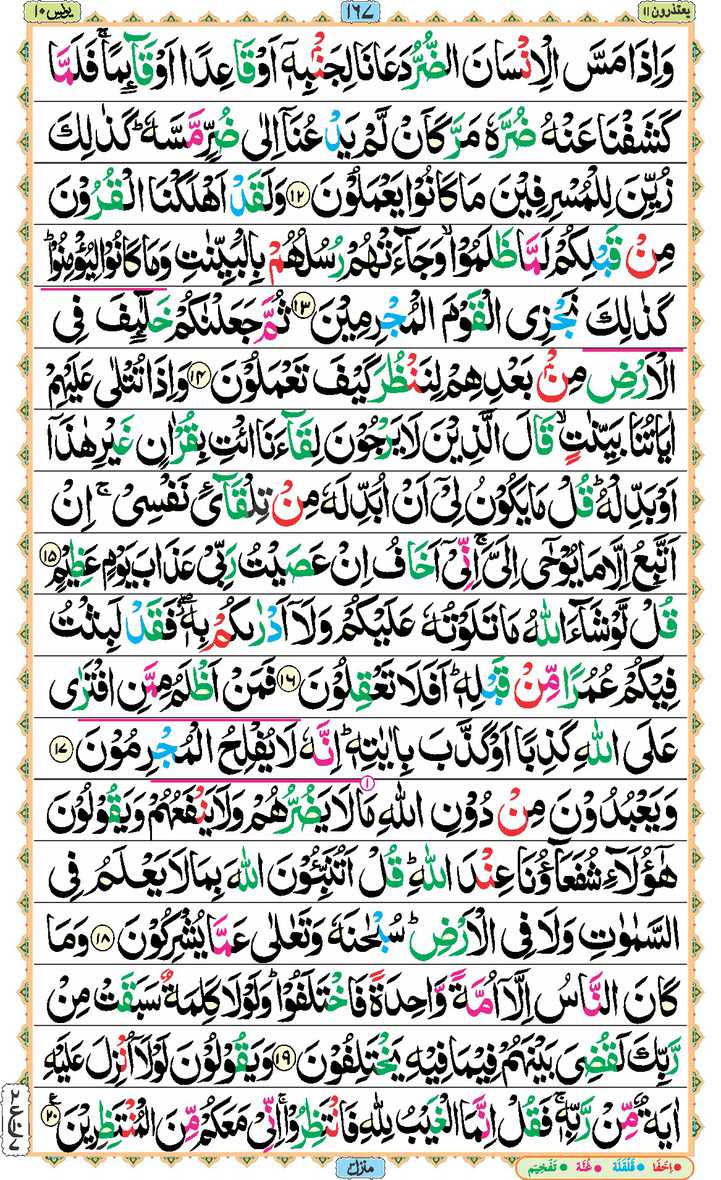 یعتذرون ۱۱
۱۶۷
یونس ۱۰
وَاِذَا مَسَّ الْاِنْسَانَ الضُّرُّ دَعَانَا لِجَنْۢبِهٖۤ اَوْ قَاعِدًا اَوْ قَآئِمًا ۚ فَلَمَّا
كَشَفْنَا عَنْهُ ضُرَّهٗ مَرَّ كَاَنْ لَّمْ يَدْعُنَاۤ اِلٰى ضُرٍّ مَّسَّهٗ ؕ كَذٰلِكَ
زُيِّنَ لِلْمُسْرِفِيْنَ مَا كَانُوْا يَعْمَلُوْنَ ۝۱۲ وَلَقَدْ اَهْلَكْنَا الْقُرُوْنَ
مِنْ قَبْلِكُمْ لَمَّا ظَلَمُوْا ۙ وَجَآءَتْهُمْ رُسُلُهُمْ بِالْبَيِّنٰتِ وَمَا كَانُوْا لِيُؤْمِنُوْا ؕ
كَذٰلِكَ نَجْزِى الْقَوْمَ الْمُجْرِمِيْنَ ۝۱۳ ثُمَّ جَعَلْنٰكُمْ خَلٰٓئِفَ فِى
الْاَرْضِ مِنْۢ بَعْدِهِمْ لِنَنْظُرَ كَيْفَ تَعْمَلُوْنَ ۝۱۴ وَاِذَا تُتْلٰى عَلَيْهِمْ
اٰيَاتُنَا بَيِّنٰتٍ ۙ قَالَ الَّذِيْنَ لَا يَرْجُوْنَ لِقَآءَنَا ائْتِ بِقُرْاٰنٍ غَيْرِ هٰذَاۤ
اَوْ بَدِّلْهُ ؕ قُلْ مَا يَكُوْنُ لِىْۤ اَنْ اُبَدِّلَهٗ مِنْ تِلْقَآئِ نَفْسِىْ ۚ اِنْ
اَتَّبِعُ اِلَّا مَا يُوْحٰۤى اِلَىَّ ۚ اِنِّىْۤ اَخَافُ اِنْ عَصَيْتُ رَبِّىْ عَذَابَ يَوْمٍ عَظِيْمٍ ۝۱۵
قُلْ لَّوْ شَآءَ اللّٰهُ مَا تَلَوْتُهٗ عَلَيْكُمْ وَلَاۤ اَدْرٰٮكُمْ بِهٖ ۖ فَقَدْ لَبِثْتُ
فِيْكُمْ عُمُرًا مِّنْ قَبْلِهٖ ؕ اَفَلَا تَعْقِلُوْنَ ۝۱۶ فَمَنْ اَظْلَمُ مِمَّنِ افْتَرٰى
عَلَى اللّٰهِ كَذِبًا اَوْ كَذَّبَ بِاٰيٰتِهٖ ؕ اِنَّهٗ لَا يُفْلِحُ الْمُجْرِمُوْنَ ۝۱۷
وَيَعْبُدُوْنَ مِنْ دُوْنِ اللّٰهِ مَا لَا يَضُرُّهُمْ وَلَا يَنْفَعُهُمْ وَيَقُوْلُوْنَ
هٰٓؤُلَآءِ شُفَعَآؤُنَا عِنْدَ اللّٰهِ ؕ قُلْ اَتُنَبِّئُوْنَ اللّٰهَ بِمَا لَا يَعْلَمُ فِى
السَّمٰوٰتِ وَلَا فِى الْاَرْضِ ؕ سُبْحٰنَهٗ وَتَعٰلٰى عَمَّا يُشْرِكُوْنَ ۝۱۸ وَمَا
كَانَ النَّاسُ اِلَّاۤ اُمَّةً وَّاحِدَةً فَاخْتَلَفُوْا ؕ وَلَوْلَا كَلِمَةٌ سَبَقَتْ مِنْ
رَّبِّكَ لَقُضِىَ بَيْنَهُمْ فِيْمَا فِيْهِ يَخْتَلِفُوْنَ ۝۱۹ وَيَقُوْلُوْنَ لَوْلَاۤ اُنْزِلَ عَلَيْهِ
اٰيَةٌ مِّنْ رَّبِّهٖ ۚ فَقُلْ اِنَّمَا الْغَيْبُ لِلّٰهِ فَانْتَظِرُوْا ۚ اِنِّىْ مَعَكُمْ مِّنَ الْمُنْتَظِرِيْنَ ۝۲۰
منزل ۳
اِخفا • قَلقَلَة • غُنَّة • تَفخِیم •